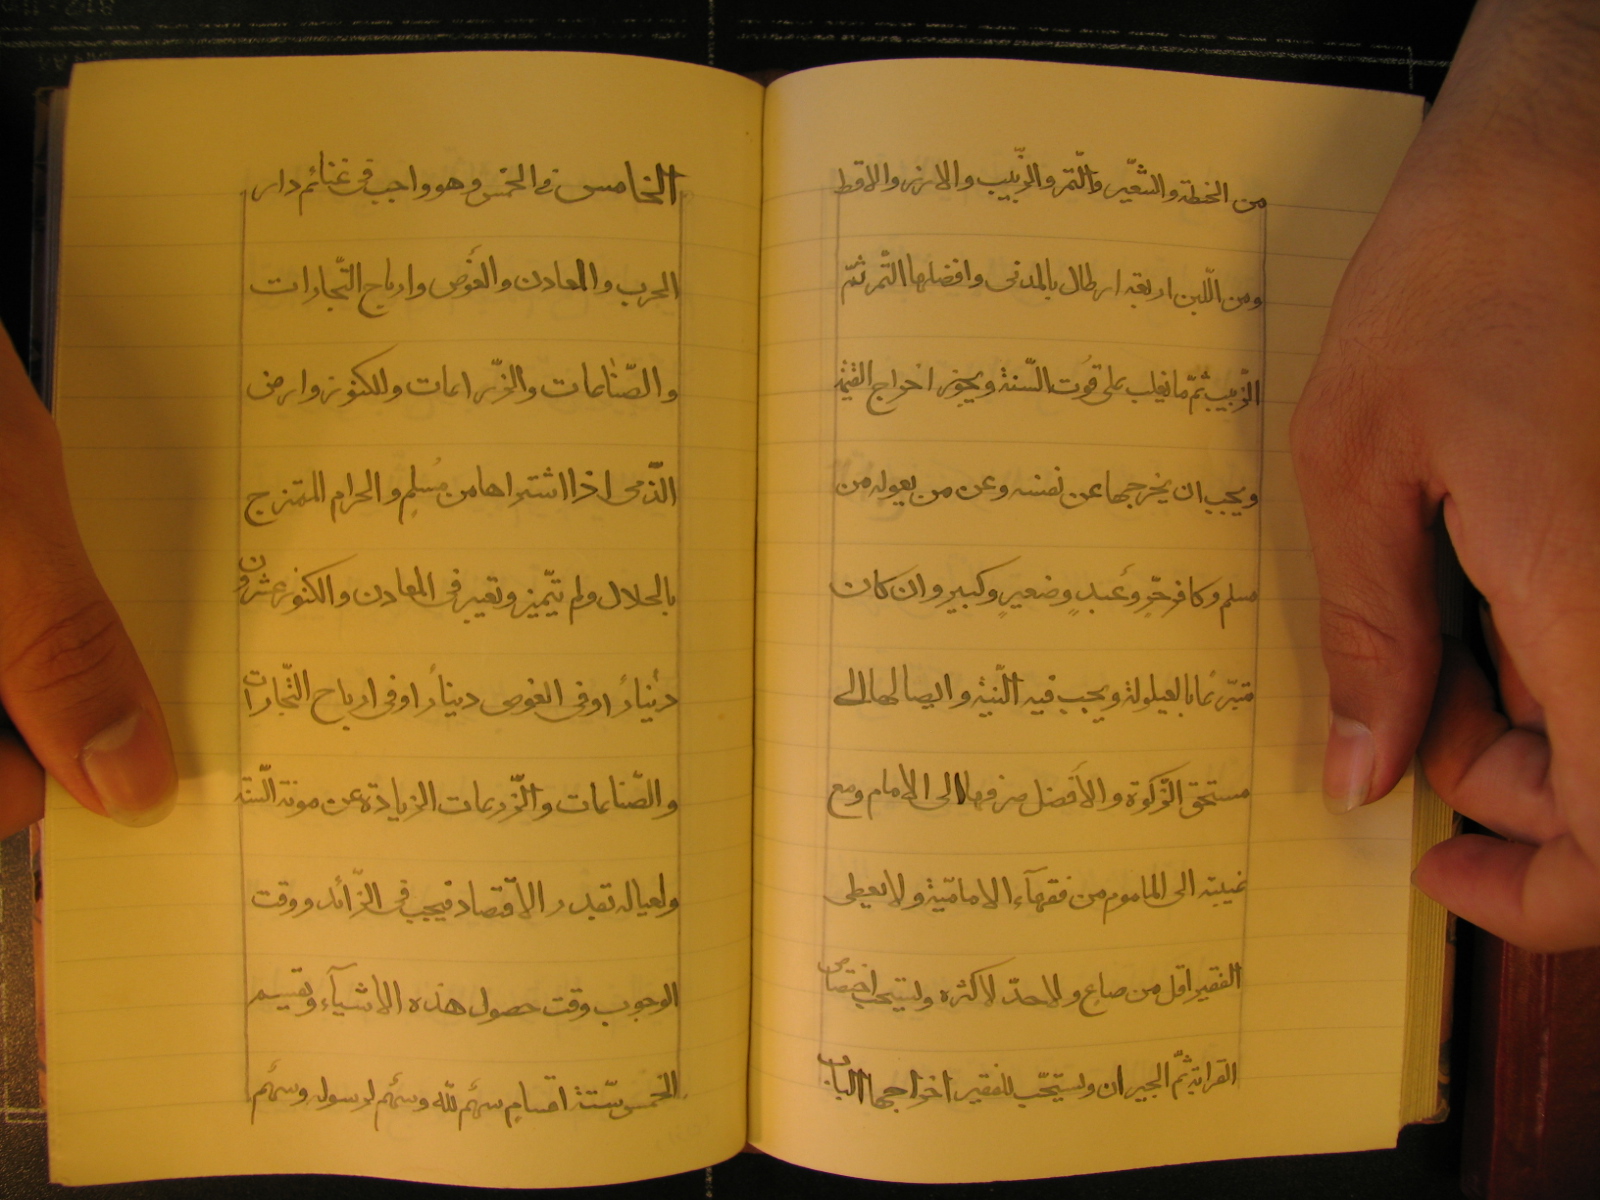 من الحنطة والشّعير والتّمر والزّبيب والارز والاقط
ومن اللّبن اربعة ارطال بالمدنى وافضلها التّمر ثمّ
الزّبيب ثمّ ما يغلب على قوت السّنة ويجوز اخراج القيمة
ويجب ان يخرجها عن نفسه وعن من يعوله من
مسلم وكافر حّرٍ وعَبدٍ وصغيرٍ وكبير وان كان
متبّرعا بالعيلولة ويجب فيه النّية وايصالها الى
مستحق الزّكوة والأفضل صرفها الى الامام ومع
غيبته الى المأموم من فقهآء الاماميّة ولا يعطى
الفقير اقل من صاع ولا حدّ لاكثره ويستحب اختصاص
القرابة ثمّ الجيران ويستحّب للفقير اخراجها الباب
الخامس فى الخمس وهو واجب فى غنائم دار
الحرب والمعادن والغَوص وارباح التّجارات
والصّناعات والزّراعات والكنوز وارض
الذّمى اذا اشتراها من مُسلمٍ والحرام الممتزج
بالحلال ولم يتمّيز وتعتبر فى المعادن والكنوز عشرون
ديناراً وفى الغوص ديناراً وفى ارباح التّجارات
والصّناعات والزّرعات الزيادة عن مونة السّنة
ولعياله بقدر الاقتصاد فيجب فى الزّائد ووقت
الوجوب وقت حصول هذه الاشيآء وتقسيم
الخمس ستّة اقسامٍ سهم للّه وسهم لرسوله وسهم